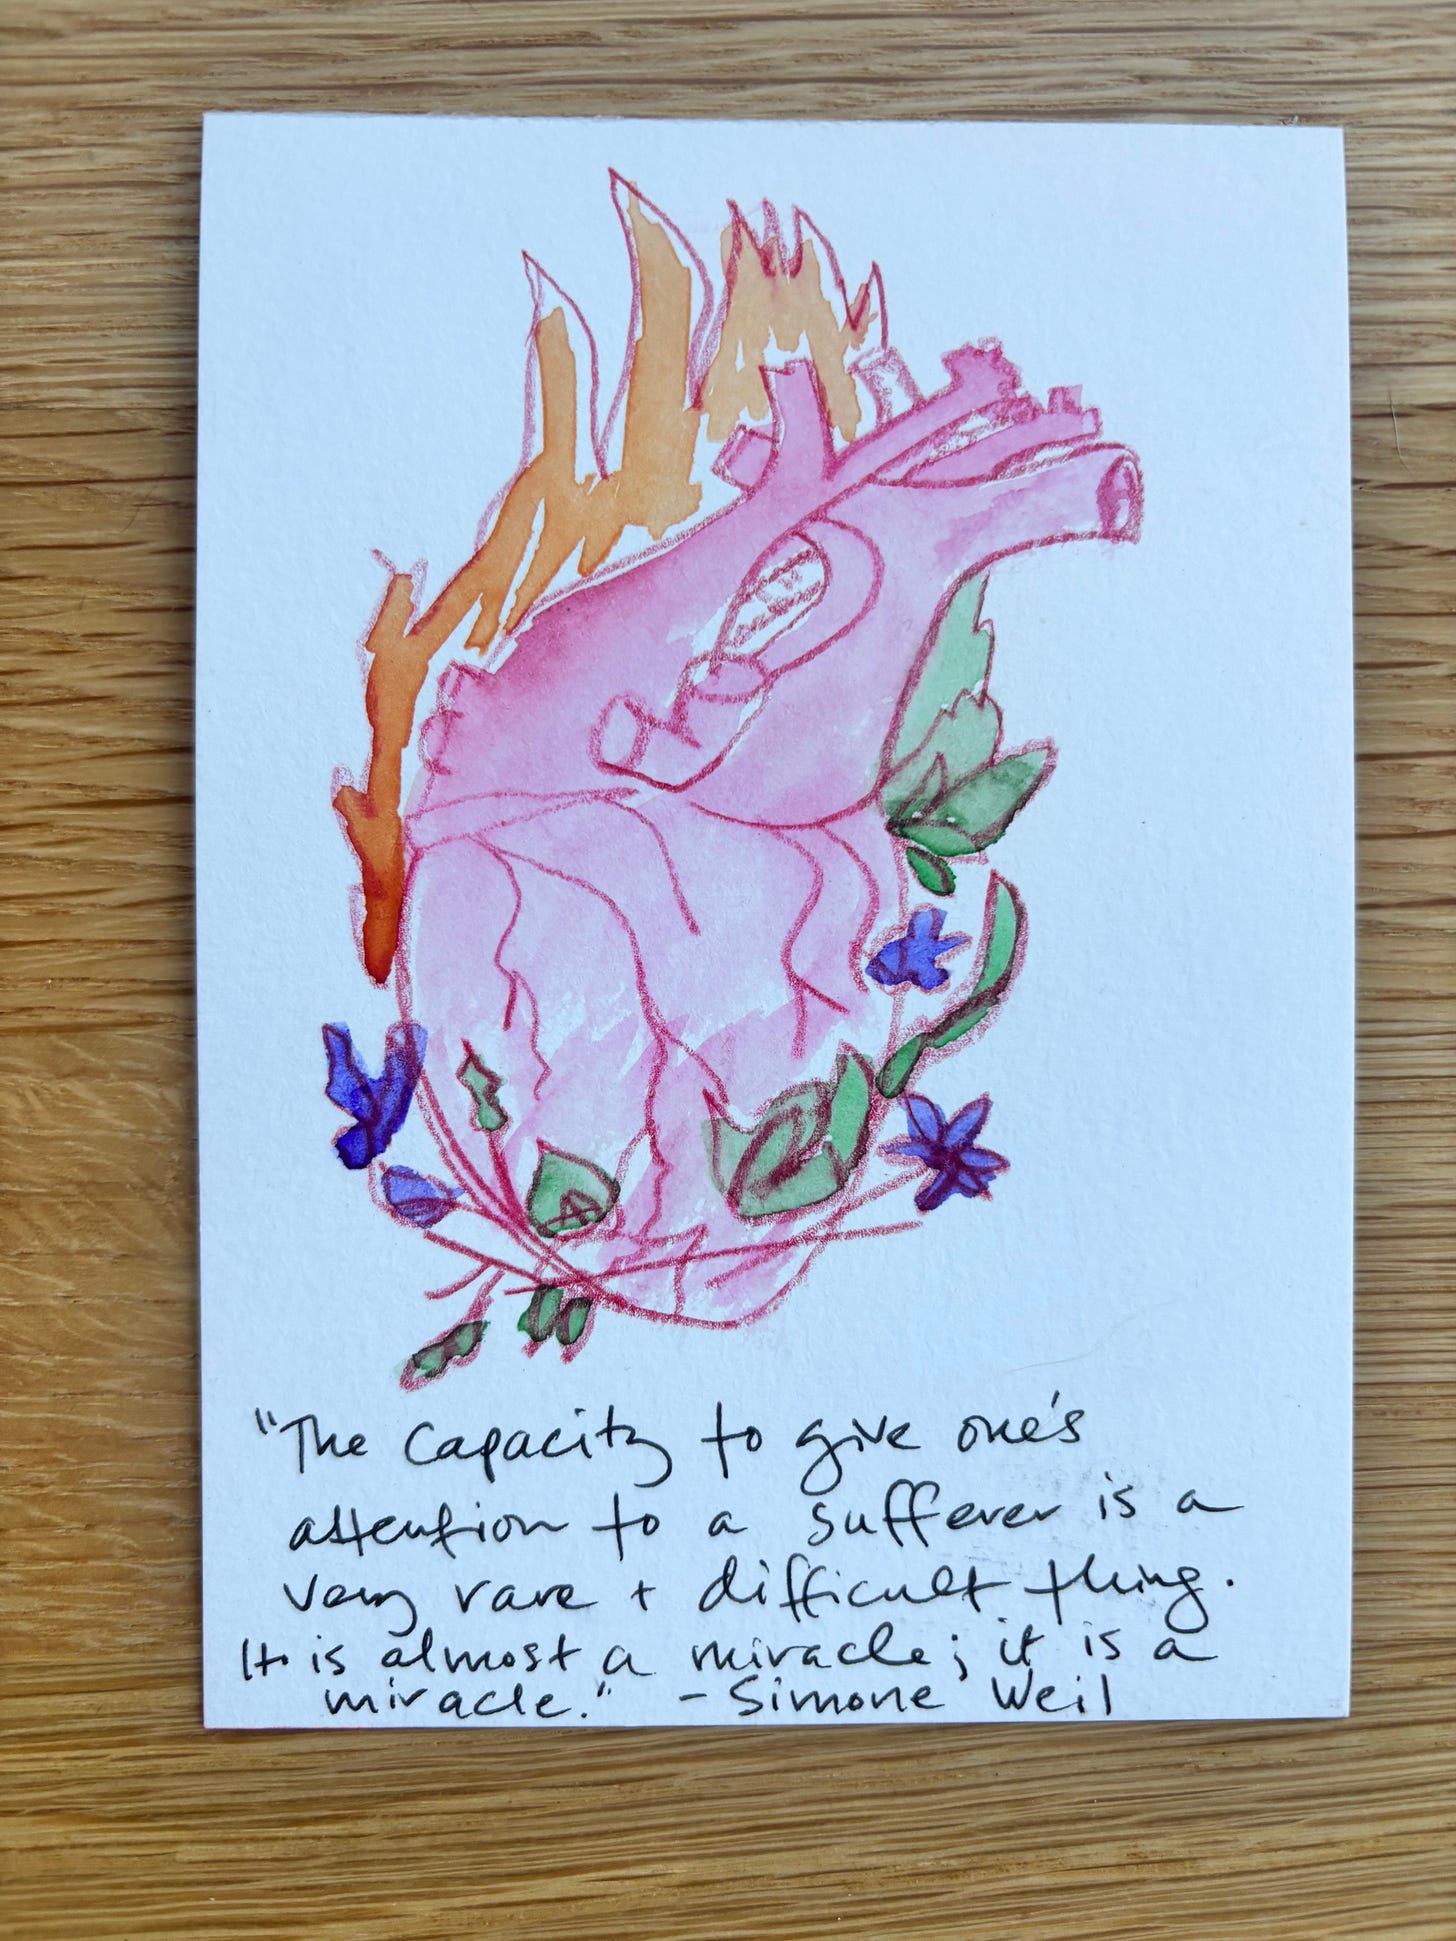 "The capacity to give one's
attention to a sufferer is a
very rare + difficult thing.
It is almost a miracle; it is a
miracle." - Simone Weil